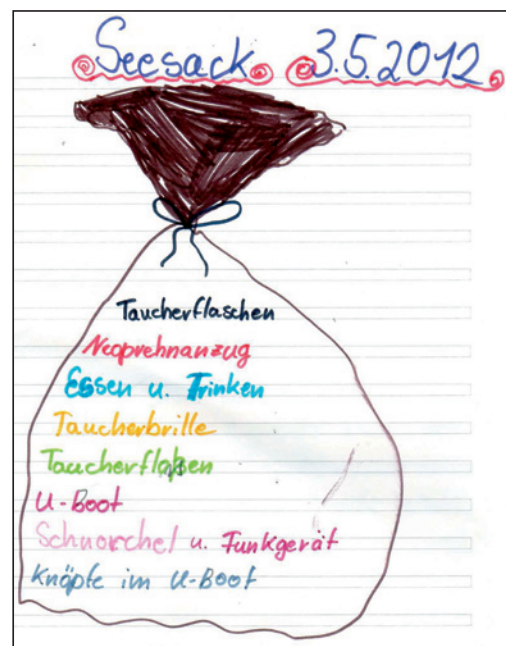 Seesack 3.5.2012
Taucherflaschen
Neoprehnanzug
Essen u. Trinken
Taucherbrille
Taucherfloßen
U-Boot
Schnorchel u. Funkgerät
Knöpfe im U-Boot